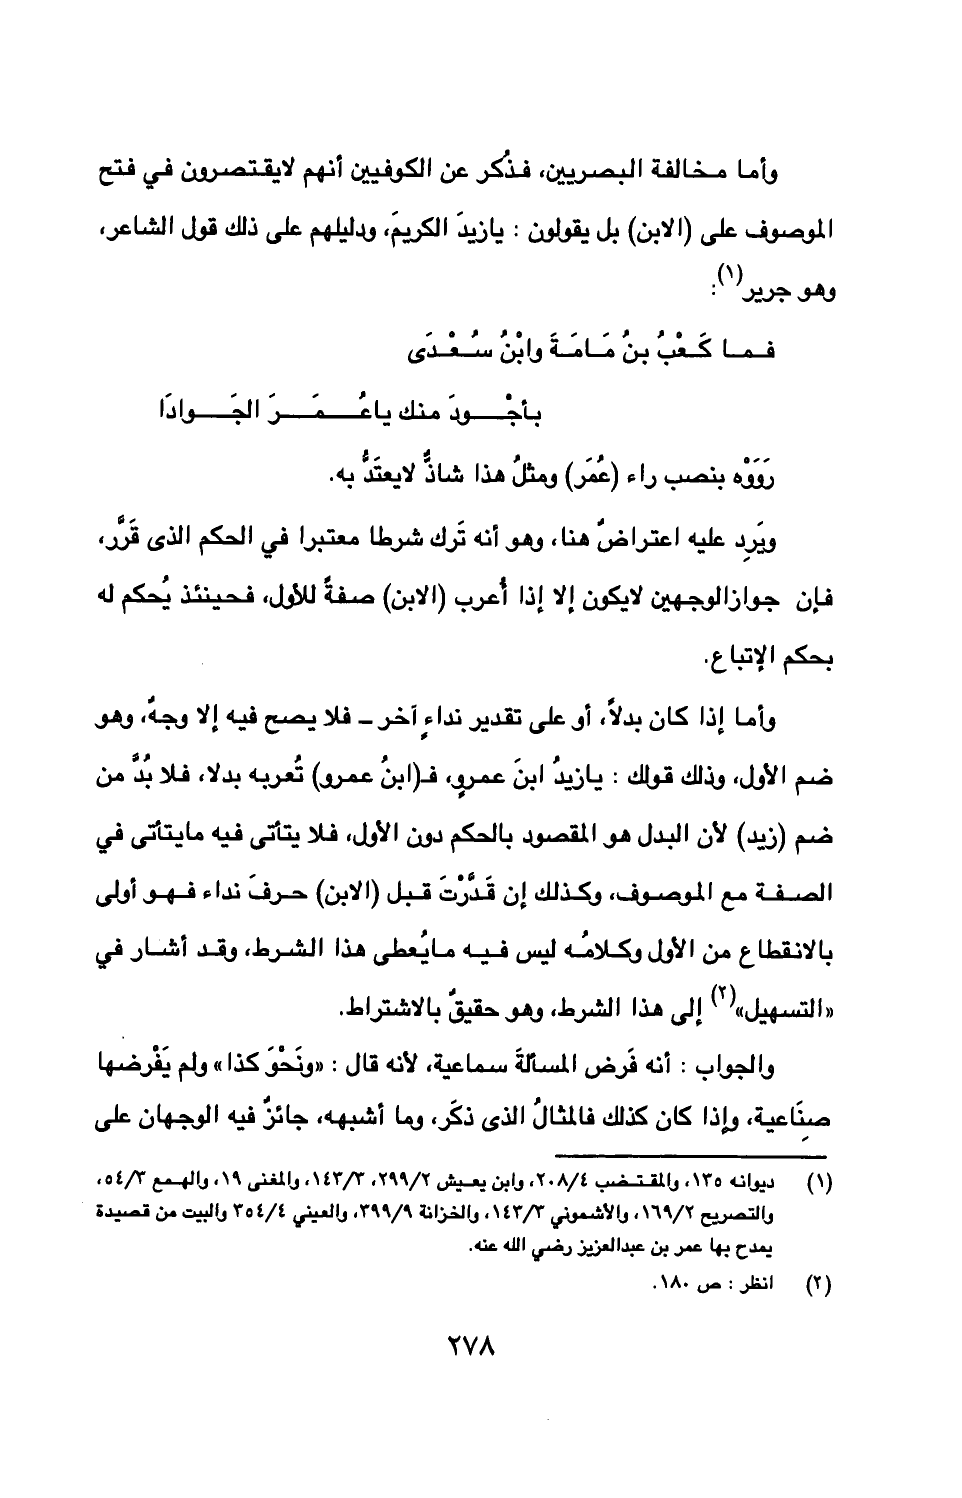 وأما مخالفة البصريين، فذُكر عن الكوفيين أنهم لايقتصرون في فتح
الموصوف على (الابن) بل يقولون : يازيدَ الكريمَ، ودليلهم على ذلك قول الشاعر،
وهو جرير(١):
فما كَعْبُ بنُ مَامَةَ وابْنُ سُعْدَى
بأجْودَ منك ياعُمَرَ الجَوادَا
رَوَوْه بنصب راء (عُمَر) ومثلُ هذا شاذٌّ لايعتَدُّ به.
ويَرِد عليه اعتراضٌ هنا، وهو أنه تَرك شرطا معتبرا في الحكم الذى قَرَّر،
فإن جوازالوجهين لايكون إلا إذا أُعرب (الابن) صفةً للأول، فحينئذ يُحكم له
بحكم الإتباع.
وأما إذا كان بدلاً، أو على تقدير نداءٍ آخر ـ فلا يصح فيه إلا وجهٌ، وهو
ضم الأول، وذلك قولك : يازيدُ ابنَ عمروٍ، فـ(ابنُ عمرو) تُعربه بدلا، فلا بُدَّ من
ضم (زيد) لأن البدل هو المقصود بالحكم دون الأول، فلا يتأتى فيه مايتأتى في
الصفة مع الموصوف، وكذلك إن قَدَّرْتَ قبل (الابن) حرفَ نداء فهو أولى
بالانقطاع من الأول وكلامُه ليس فيه مايُعطى هذا الشرط، وقد أشار في
«التسهيل»(٢) إلى هذا الشرط، وهو حقيقٌ بالاشتراط.
والجواب : أنه فَرض المسألةَ سماعية، لأنه قال : «ونَحْوَ كذا» ولم يَفْرضها
صِنَاعية، وإذا كان كذلك فالمثالُ الذى ذكَر، وما أشبهه، جائزٌ فيه الوجهان على
(١) ديوانه ١٣٥، والمقتضب ٢٠٨/٤، وابن يعيش ٢٩٩/٢، ١٤٣/٣، والمغنى ١٩، والهمع ٥٤/٣،
والتصريح ١٦٩/٢، والأشموني ١٤٣/٣، والخزانة ٣٩٩/٩، والعيني ٣٥٤/٤ والبيت من قصيدة
يمدح بها عمر بن عبدالعزيز رضي الله عنه.
(٢) انظر : ص ١٨٠.
٢٧٨